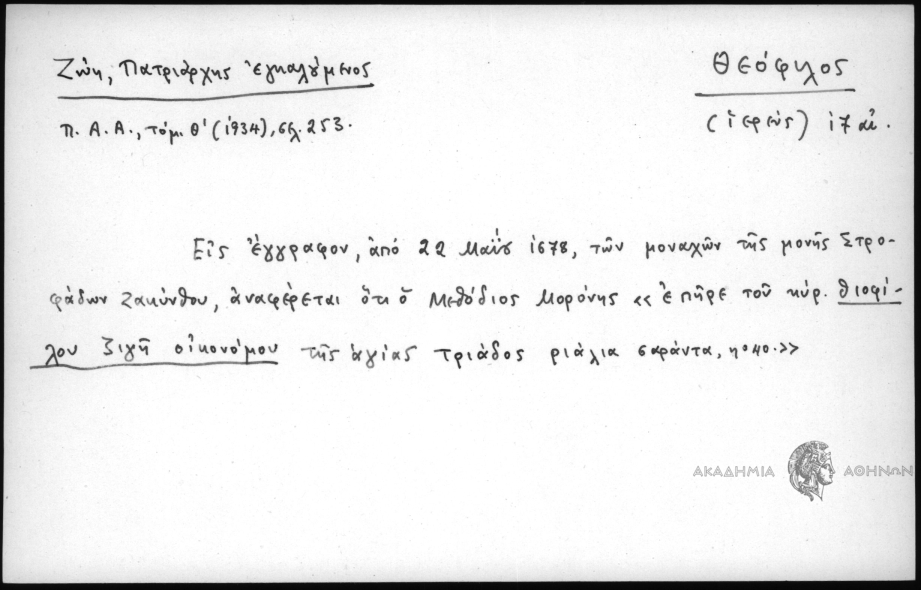 Ζώη, Πατριάρχης ἐγκαλούμενος
Θεόφιλος
Π.Α.Α., τόμ. Θ' (1934), σελ. 253.
(ἱερεύς) 17 αἰ.
Εἰς ἔγγραφον, ἀπό 22 Μαΐου 1678, τῶν μοναχῶν τῆς μονῆς Στρο-
φάδων Ζακύνθου, ἀναφέρεται ὅτι ὁ Μεθόδιος Μορόνης «ἐπῆρε τοῦ κύρ. θιοφί-
λου ζιγῆ οἰκονόμου τῆς ἁγίας τριάδος ριάλια σαράντα, νο 40.»
ΑΚΑΔΗΜΙΑ ΑΘΗΝΩΝ